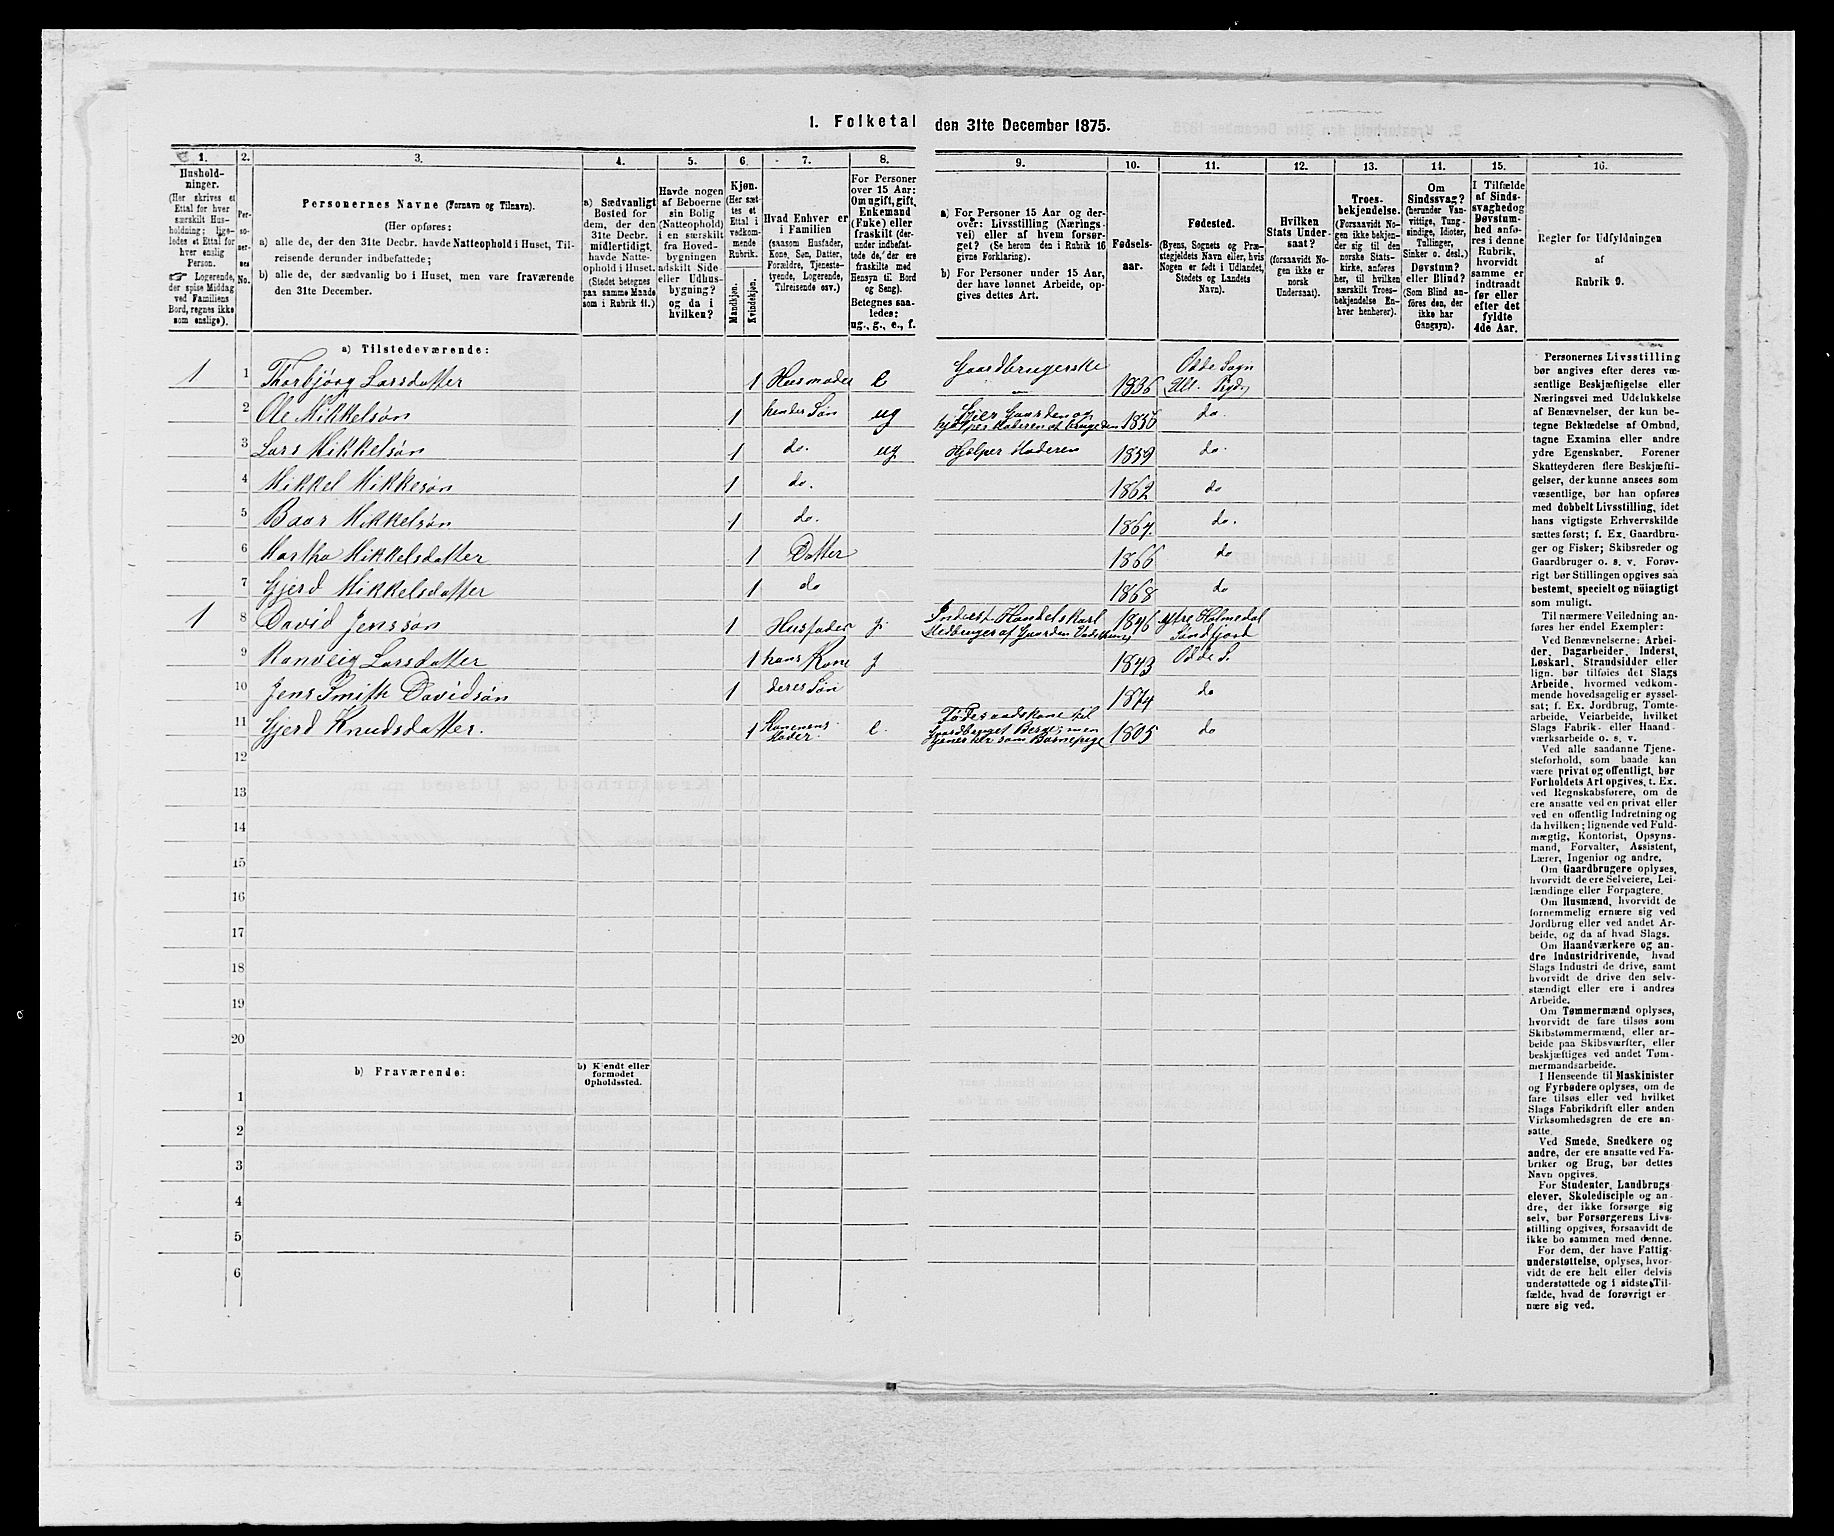 1. Folketal den 31te December 1875.
1.
Hushold-
ninger.
(Her skrives et
Ettal for hver
særskilt Hus-
holdning; lige-
ledes et Ettal for
hver enslig
Person.
☛ Logerende,
der spise Middag
ved Familiens
Bord, regnes ikke
som enslige).
2.
Per-
so-
ner-
nes
No.
3.
Personernes Navne (Fornavn og Tilnavn).
(Her opføres:
a) alle de, der den 31te Decbr. havde Natteophold i Huset, Til-
reisende derunder indbefattede;
b) alle de, der sædvanlig bo i Huset, men vare fraværende
den 31te December.
4.
a) Sædvanligt
Bosted for
dem, der den
31te Decbr.
midlertidigt
havde Natte-
ophold i Huset.
(Stedet betegnes
paa samme Maade
som i Rubrik 11.)
5.
Havde nogen
af Beboerne
sin Bolig
(Natteophold)
i en særskilt
fra Hoved-
bygningen
adskilt Side-
eller Udhus-
bygning?
og da i
hvilken?
6.
Kjøn.
(Her sæt-
tes et
Ettal i
vedkom-
mende
Rubrik.
Mandkjøn.
Kvindekjøn.
7.
Hvad Enhver er
i Familien
(saasom Husfader,
Kone, Søn, Datter,
Forældre, Tjeneste-
tyende, Logerende,
Tilreisende osv.)
8.
For Personer
over 15 Aar:
Om ugift, gift,
Enkemand
(Enke) eller
fraskilt (der-
under indbefat-
tede de, der ere
fraskilte med
Hensyn til Bord
og Seng).
Betegnes saa-
ledes:
ug., g., e., f.
9.
a) For Personer 15 Aar og der-
over: Livsstilling (Nærings-
vei) eller af hvem forsør-
get? (Se herom den i Rubrik 16
givne Forklaring).
b) For Personer under 15 Aar,
der have lønnet Arbeide, op-
gives dettes Art.
10.
Fødsels-
aar.
11.
Fødested.
(Byens, Sognets og Præ-
stegjeldets Navn eller, hvis
Nogen er født i Udlandet,
Stedets og Landets
Navn).
12.
Hvilken
Stats Under-
saat?
(forsaavidt No-
gen ikke er
norsk
Undersaat).
13.
Troes-
bekjendelse.
(Forsaavidt No-
gen ikke bekjen-
der sig til den
norske Stats-
kirke, anføres
her, til hvilken
særskilt Troes-
bekjendelse En-
hver henhører).
14.
Om
Sindssvag?
(herunder Van-
vittige, Tung-
sindige, Idioter,
Tullinger,
Sinker o. desl.)
Døvstum?
eller Blind?
(Som Blind an-
føres den, der
ikke har
Gangsyn).
15.
I Tilfælde
af Sinds-
svaghed og
Døvstum-
hed anfø-
res i denne
Rubrik,
hvorvidt
samme er
indtraadt
før eller
efter det
fyldte
4de Aar.
16.
Regler for Udfyldningen
af
Rubrik 9.
a) Tilstedeværende:
1 1 Thorbjørg Larsdatter 1 Husmoder e Gaardbrugerske 1836 Odde Sogn
Ull. Prgd.
2 Ole Mikkelsøn 1 hendes Søn ug Eier Gaarden og
hjælper Moderen at bruge den 1856 do.
3 Lars Mikkelsøn 1 do. ug Hjælper Moderen 1859 do.
4 Mikkel Mikkesøn 1 do. 1862 do
5 Baar Mikkelsøn 1 do. 1864. do.
6 Martha Mikkelsdatter 1 Datter 1866 do
7 Gjerd Mikkelsdatter 1 do 1868 do
1 8 David Jenssøn 1 Husfader g. Inderst Handelskarl
Medbruger af Gaarden 1846 ytre Holmedal
Søndfjord
9 Ranveig Larsdatter 1 hans Kone g 1843 Odde S.
10 Jens Smith Davidsøn 1 deres Søn 1874 do
11 Gjerd Knudsdatter. 1 Konenens
Moder. e. Føderaadskone til
Gaardbruget men
tjener her som Barnepige 1805 do
12
13
14
15
16
17
18
19
20
b) Fraværende:
b) Kjendt eller
formodet
Opholdssted.
1
2
3
4
5
6
Personernes Livsstilling
bør angives efter deres væ-
sentlige Beskjæftigelse eller
Næringsvei med Udelukkelse
af Benævnelser, der kun be-
tegne Beklædelse af Ombud,
tagne Examina eller andre
ydre Egenskaber. Forener
Skatteyderen flere Beskjæfti-
gelser, der kunne ansees som
væsentlige, bør han opføres
med dobbelt Livsstilling, idet
hans vigtigste Erhvervskilde
sættes først; f. Ex. Gaardbru-
ger og Fisker; Skibsreder og
Gaardbruger o. s. v. Forøv-
rigt bør Stillingen opgives saa
bestemt, specielt og nøiagtigt
som muligt.
Til nærmere Veiledning an-
føres her endel Exempler:
Ved Benævnelserne: Arbei-
der, Dagarbeider, Inderst,
Løskarl, Strandsidder eller
lign. bør tilføies det Slags
Arbeide, hvormed vedkom-
mende hovedsagelig er syssel-
sat; f. Ex. Jordbrug, Tomte-
arbeide, Veiarbeide, hvilket
Slags Fabrik- eller Haand-
værksarbeide o. s. v.
Ved alle saadanne Tjene-
steforhold, som baade kan
være privat og offentligt, bør
Forholdets Art opgives, t. Ex.
ved Regnskabsførere, om de
ere ansatte ved en privat eller
ved en offentlig Indretning og
da hvilken; lignende ved Fuld-
mægtig, Kontorist, Opsyns-
mand, Forvalter, Assistent,
Lærer, Ingeniør og andre.
Om Gaardbrugere oplyses,
hvorvidt de ere Selveiere, Lei-
lændinge eller Forpagtere.
Om Husmænd, hvorvidt de
fornemmelig ernære sig ved
Jordbrug eller ved andet Ar-
beide, og da af hvad Slags.
Om Haandværkere og an-
dre Industridrivende, hvad
Slags Industri de drive, samt
hvorvidt de drive den selv-
stændigt eller ere i andres
Arbeide.
Om Tømmermænd oplyses,
hvorvidt de fare tilsøs som
Skibstømmermænd, eller ar-
beide paa Skibsværfter, eller
beskjæftiges ved andet Tøm-
mermandsarbeide.
I Henseende til Maskinister
og Fyrbødere oplyses, om de
fare tilsøs eller ved hvilket
Slags Fabrikdrift eller anden
Virksomhedsgren de ere an-
satte.
Ved Smede, Snedkere og
andre, der ere ansatte ved Fa-
briker og Brug, bør dettes
Navn opgives.
For Studenter, Landbrugs-
elever, Skoledisciple og an-
dre, der ikke forsørge sig
selv, bør Forsørgerens Livs-
stilling opgives, forsaavidt de
ikke bo sammen med denne.
For dem, der have Fattig-
understøttelse, oplyses, hvor-
vidt de ere helt eller delvis
understøttede og i sidste Til-
fælde, hvad de forøvrigt er-
nære sig ved.